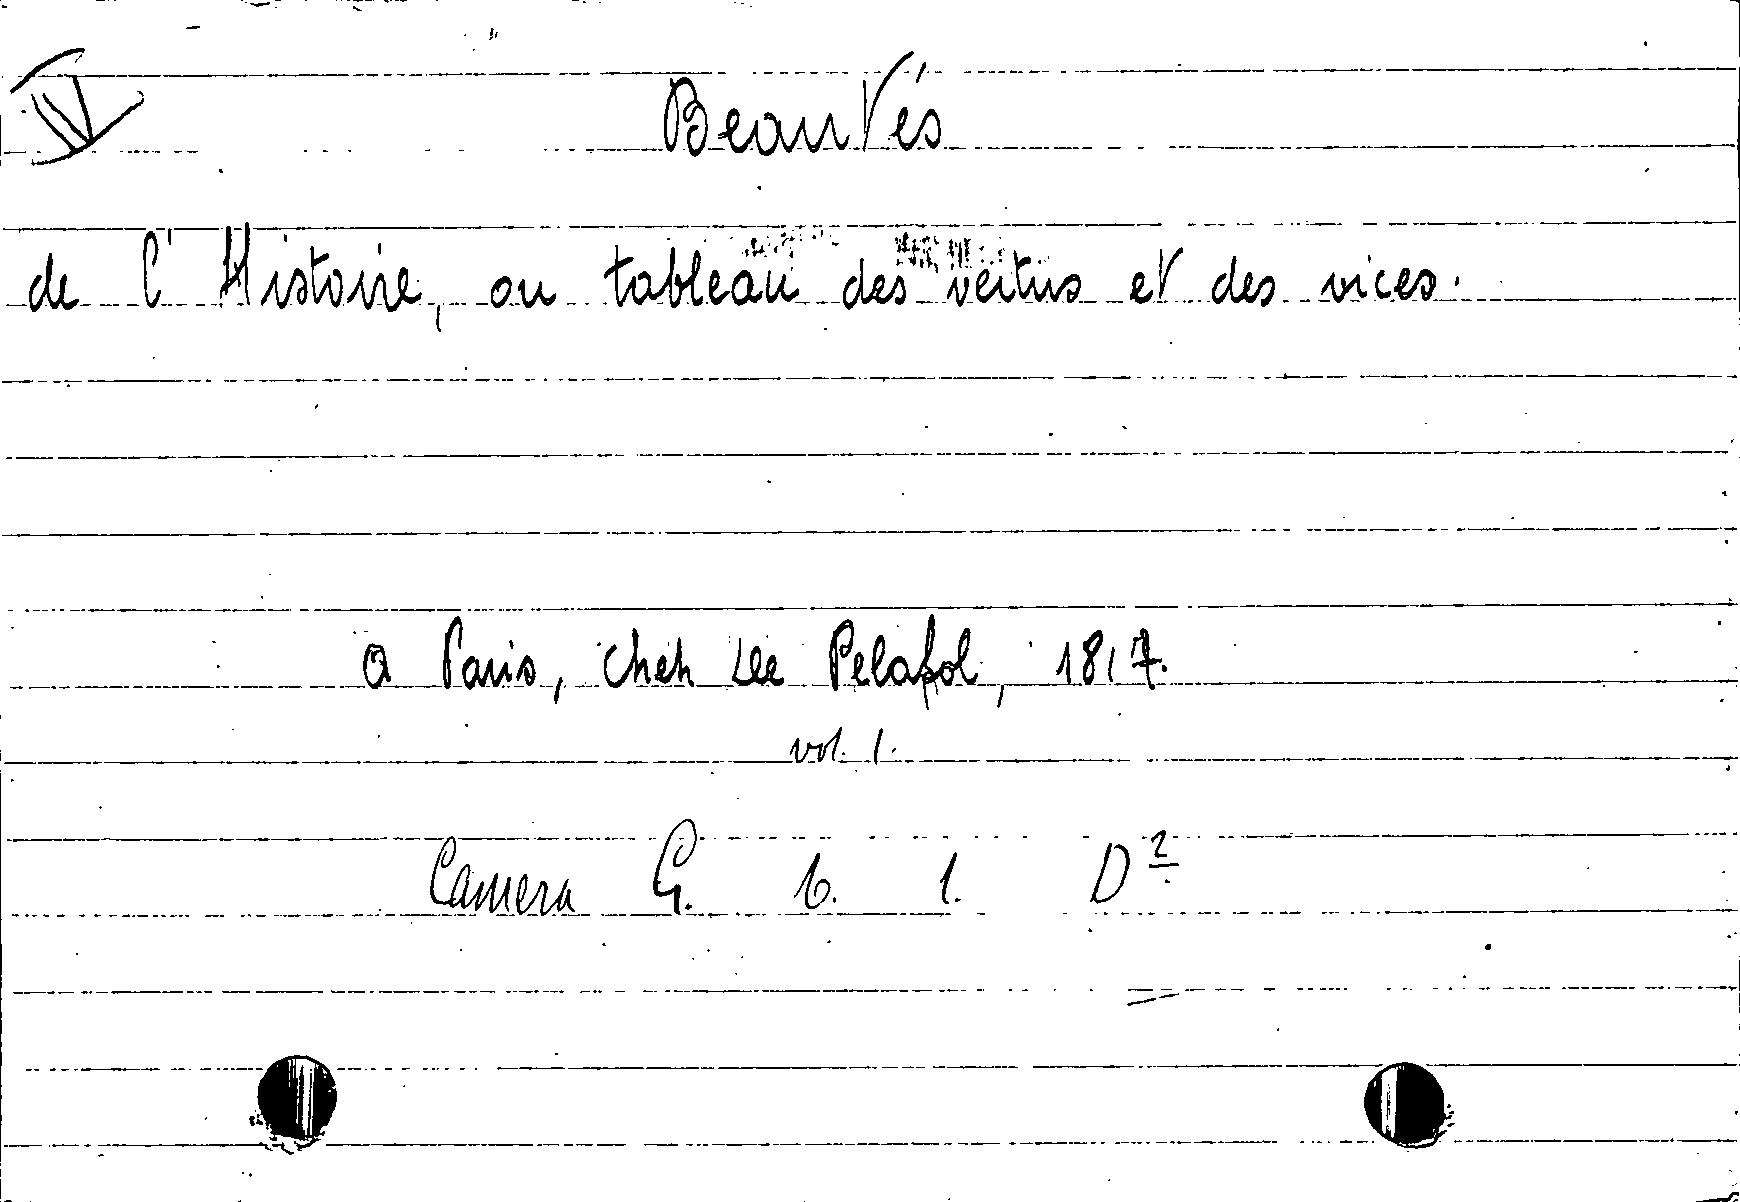 IV
Beautés
de l'Histoire, ou tableau des vertus et des vices.
a Paris, cheh Lee Pelafol, 1817.
vol. 1.
Camera G. 6. 1. D 2